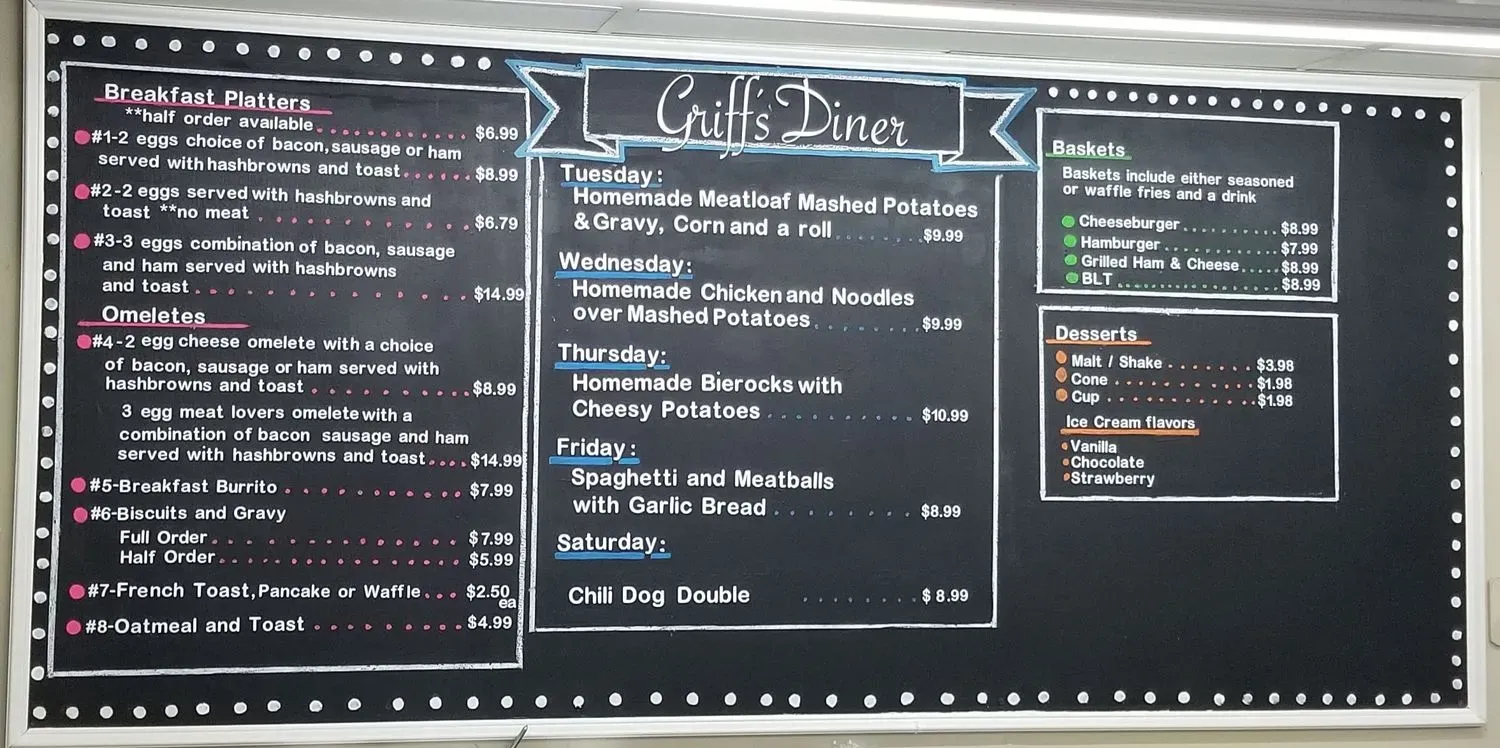 Griff's Diner
Breakfast Platters
**half order available $6.99
#1-2 eggs choice of bacon, sausage or ham
served with hashbrowns and toast $8.99
#2-2 eggs served with hashbrowns and
toast **no meat $6.79
#3-3 eggs combination of bacon, sausage
and ham served with hashbrowns
and toast $14.99
Omeletes
#4-2 egg cheese omelete with a choice
of bacon, sausage or ham served with
hashbrowns and toast $8.99
3 egg meat lovers omelete with a
combination of bacon sausage and ham
served with hashbrowns and toast $14.99
#5-Breakfast Burrito $7.99
#6-Biscuits and Gravy
Full Order $7.99
Half Order $5.99
#7-French Toast, Pancake or Waffle $2.50
ea
#8-Oatmeal and Toast $4.99
Tuesday:
Homemade Meatloaf Mashed Potatoes
& Gravy, Corn and a roll $9.99
Wednesday:
Homemade Chicken and Noodles
over Mashed Potatoes $9.99
Thursday:
Homemade Bierocks with
Cheesy Potatoes $10.99
Friday:
Spaghetti and Meatballs
with Garlic Bread $8.99
Saturday:
Chili Dog Double $8.99
Baskets
Baskets include either seasoned
or waffle fries and a drink
Cheeseburger $8.99
Hamburger $7.99
Grilled Ham & Cheese $8.99
BLT $8.99
Desserts
Malt / Shake $3.98
Cone $1.98
Cup $1.98
Ice Cream flavors
Vanilla
Chocolate
Strawberry